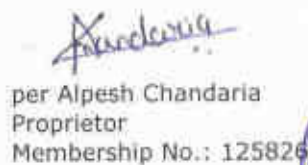 per Alpesh Chandaria
Proprietor
Membership No.: 125826